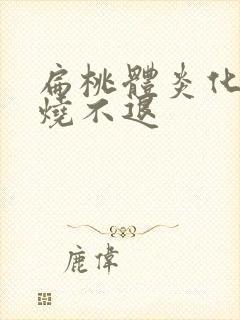 扁桃體炎化
燒不退
鹿偉